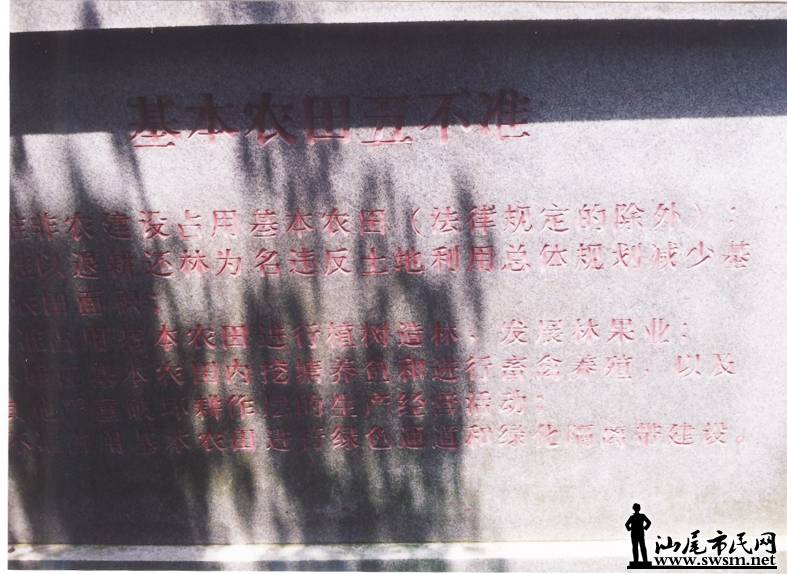 基本农田五不准
准非农建设占用基本农田(法律规定的除外);
以退耕还林为名违反土地利用总体规划减少基
农田面积;
准占用基本农田进行植树造林、发展林果业;
基本农田内挖塘养鱼和进行畜禽养殖,以及
其他严重破坏耕作层的生产经营活动;
基本农田进行绿色通道和绿化隔离带建设。
汕尾市民网
www.swsm.net